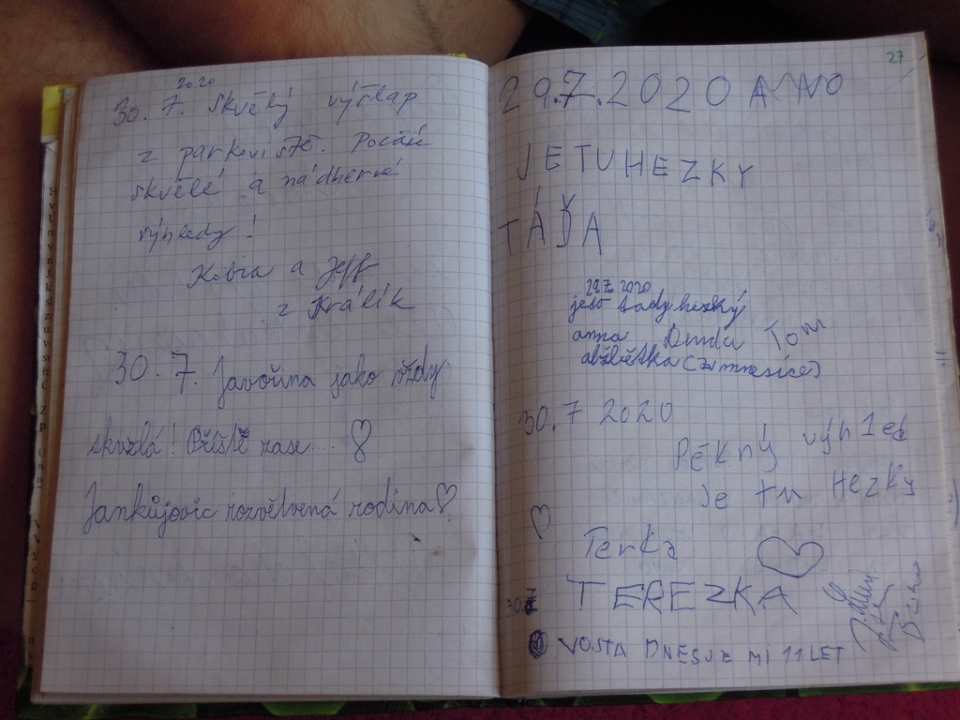 2020
30. 7. skvělý výšlap
z parkoviště. Počasí
skvělé a nádherné
výhledy!
a Jeff
z Králík
30. 7. Javořina jako vždy
skvělá! Příště zase...
Jankůjovic rozvětvená rodina
27
29.7.2020 ANNO
JETUHEZKY
TÁĎA
29.7.2020
je tady hezký
anna Tom
30.7 2020
Pěkný výhled
Je tu Hezky
Terka
30.7 TEREZKA
VOSTA DNESJE MI 11 LET